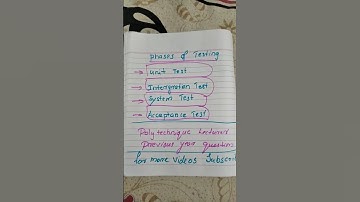 Phases of Testing
→ Unit Test
→ Intergration Test
→ System Test
→ Acceptance Test
Polytechnique Lecturer
Previous year question
for more videos Subscri